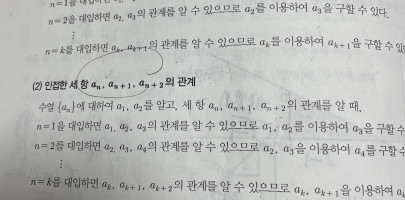 n=1을 대입하면
n=2를 대입하면 a₂, a₃의 관계를 알 수 있으므로 a₂를 이용하여 a₃을 구할 수 있다.
⋮
n=k를 대입하면 aₖ, aₖ₊₁의 관계를 알 수 있으므로 aₖ를 이용하여 aₖ₊₁을 구할 수 있
(2) 인접한 세 항 aₙ, aₙ₊₁, aₙ₊₂의 관계
수열 {aₙ}에 대하여 a₁, a₂를 알고, 세 항 aₙ, aₙ₊₁, aₙ₊₂의 관계를 알 때,
n=1을 대입하면 a₁, a₂, a₃의 관계를 알 수 있으므로 a₁, a₂를 이용하여 a₃을 구할 수
n=2를 대입하면 a₂, a₃, a₄의 관계를 알 수 있으므로 a₂, a₃을 이용하여 a₄를 구할 수
⋮
n=k를 대입하면 aₖ, aₖ₊₁, aₖ₊₂의 관계를 알 수 있으므로 aₖ, aₖ₊₁을 이용하여